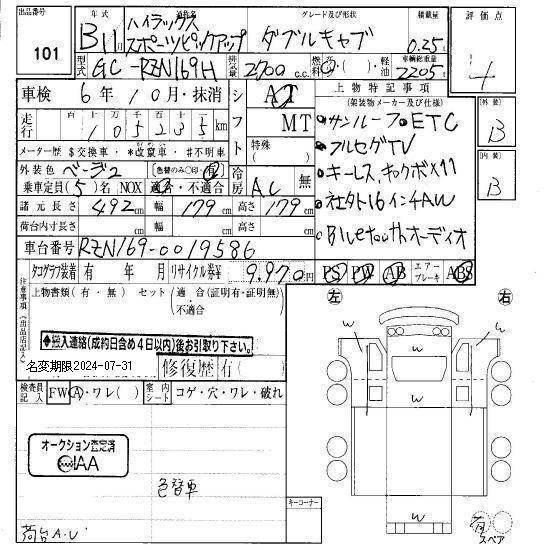 出品番号 101
年式 B11 通称名 ハイラックス スポーツピックアップ
グレード及び形状 ダブルキャブ
積載量 0.25t
評価点 4
型式 GC-RZN169H 排気量 2700 c.c. 燃料 ・( )・軽油 車輌総重量 2205
車検 6年10月・抹消
シフト AT MT 特殊( )
走行 105235km
メーター歴 $交換車・*改竄車・#不明車
外装色 ベージュ 【色替のみ○印・(有)】
乗車定員(5)名 NOX 適・不適合
冷房 AC 無
諸元長さ 492cm 幅 179cm 高さ 179cm
荷台内寸長さ cm 幅 cm 高さ cm
車台番号 RZN169-0019586
タコグラフ装着 有 年 月 リサイクル券¥ 9.970円
上物特記事項
(架装物メーカー及び仕様)
サンルーフ ETC
フルセグTV
キーレス,
社外16インチAW
Bluetoothオーディオ
PS PW AB エアーブレーキ ABS
外装 B
内装 B
注意事項(出品店記入)
上物書類(有・無)セット(適合(証明有・証明無) 不適合)
◆搬入連絡(成約日含め4日以内)後お引取り下さい。
名変期限2024-07-31
修復歴 有( )
検査員記入 FW A・ワレ( ) 室内シート コゲ・穴・ワレ・破れ
オークション査定済
IAA
色替車
荷台A.U
キーコーナー
左 右
W
W W
W
W
有
スペア